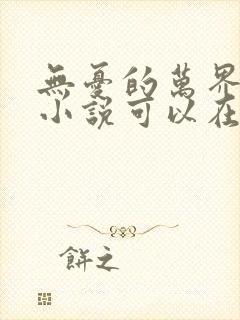 無憂的萬界
小說可以在
餅之